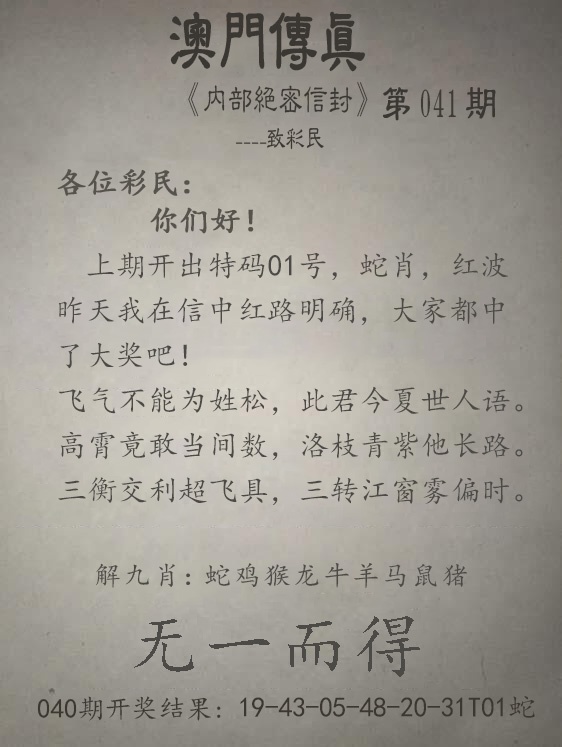 澳門傳真
《内部絕密信封》第041期
----致彩民
各位彩民：
你们好！
上期开出特码01号，蛇肖，红波
昨天我在信中红路明确，大家都中
了大奖吧！
飞气不能为姓松，此君今夏世人语。
高霄竟敢当间数，洛枝青紫他长路。
三衡交利超飞具，三转江窗雾偏时。
解九肖：蛇鸡猴龙牛羊马鼠猪
无一而得
040期开奖结果：19-43-05-48-20-31T01蛇